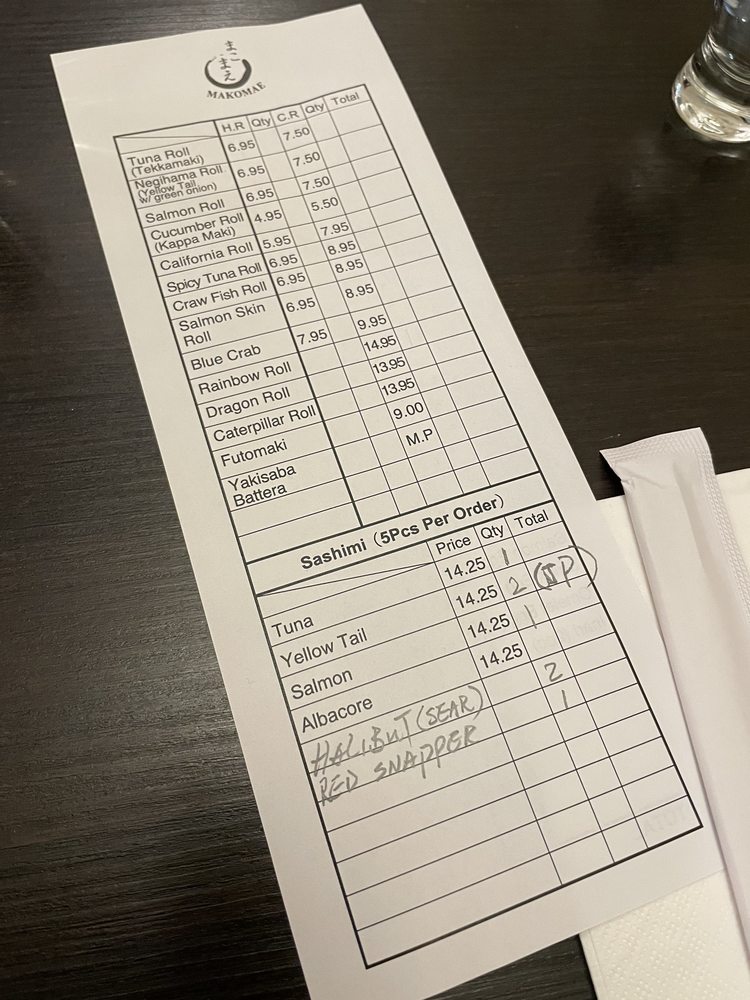 まこまえ
MAKOMAE
H.R Qty C.R Qty Total
Tuna Roll 6.95 7.50
(Tekkamaki)
Negihama Roll 6.95 7.50
(Yellow Tail
w/ green onion)
Salmon Roll 6.95 7.50
Cucumber Roll 4.95 5.50
(Kappa Maki)
California Roll 5.95 7.95
Spicy Tuna Roll 6.95 8.95
Craw Fish Roll 6.95 8.95
Salmon Skin 6.95 8.95
Roll
Blue Crab 7.95 9.95
Rainbow Roll 14.95
Dragon Roll 13.95
Caterpillar Roll 13.95
Futomaki 9.00
Yakisaba M.P
Battera
Sashimi (5Pcs Per Order)
Price Qty Total
Tuna 14.25 1
Yellow Tail 14.25 2
Salmon 14.25 1
Albacore 14.25
HALIBUT (SEAR) 2
RED SNAPPER 1